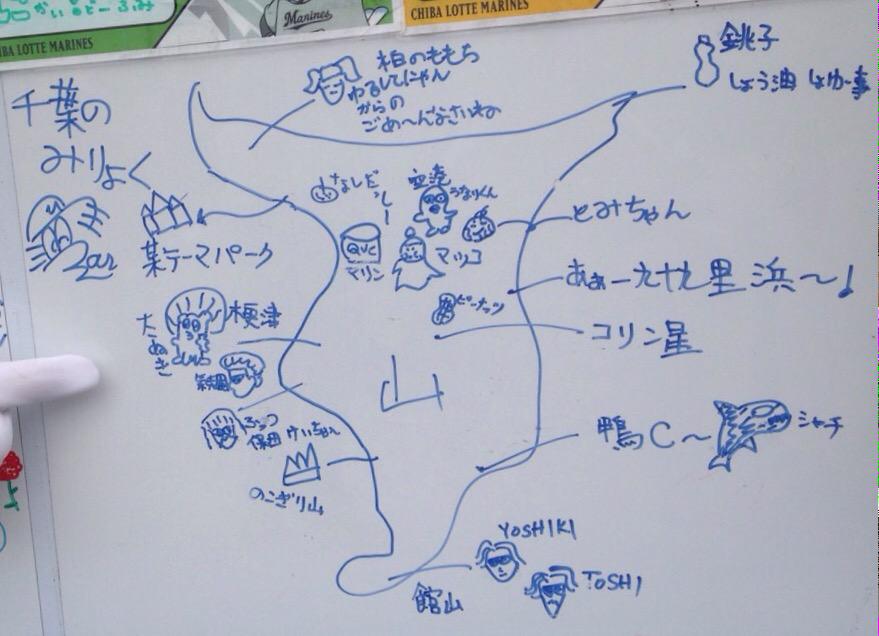 Marines
CHIBA LOTTE MARINES
CHIBA LOTTE MARINES
千葉の
みりょく
柏のももち
ゆるしてにゃん
からの
ごめ〜んなさいね
銚子
しょう油 しょゆー事
某テーマパーク
なしだしー
空港
うなりくん
とみちゃん
QVC
マリン
マツコ
あぁー九十九里浜〜!
ピーナッツ
コリン星
木更津
たぬき
氣志團
山
ふっつ
保田
けいちゃん
鴨C〜
シャチ
のこぎり山
YOSHIKI
TOSHI
館山